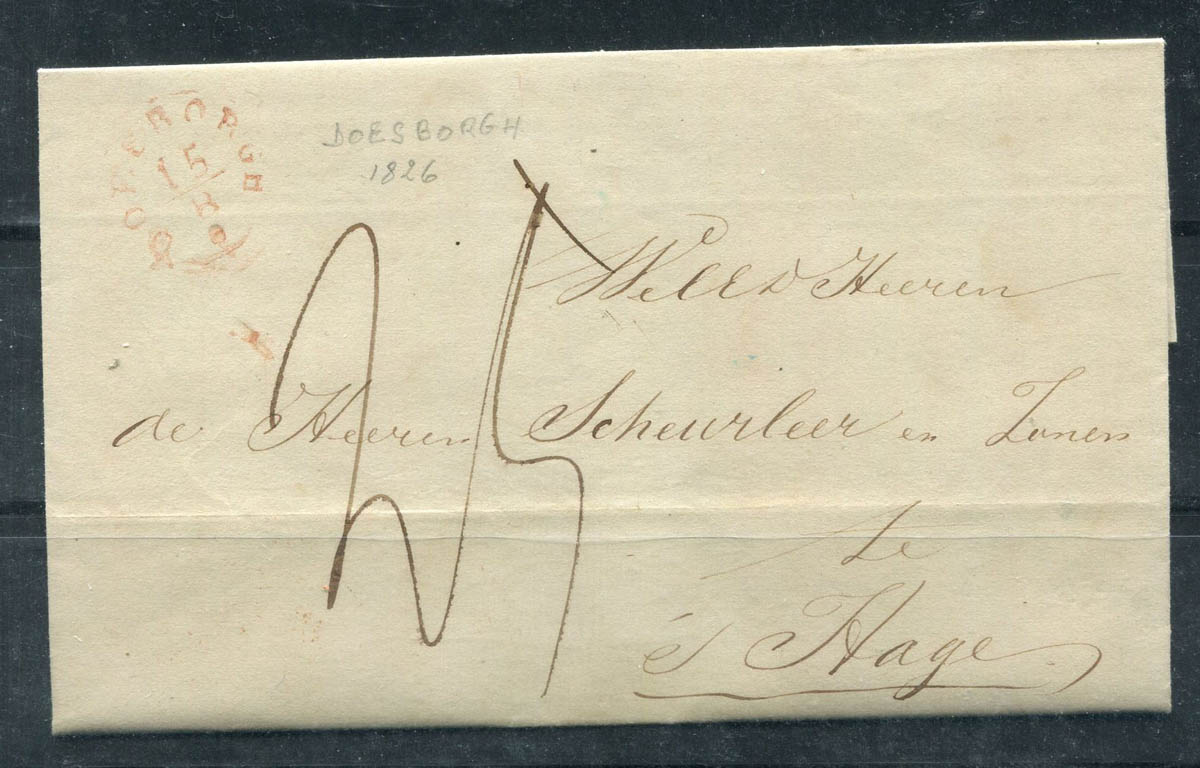 DOESBORGH
15
8
DOESBORGH
1826
25
WelEd Heeren
de Heeren Scheurleer en Zonen
te
's Hage